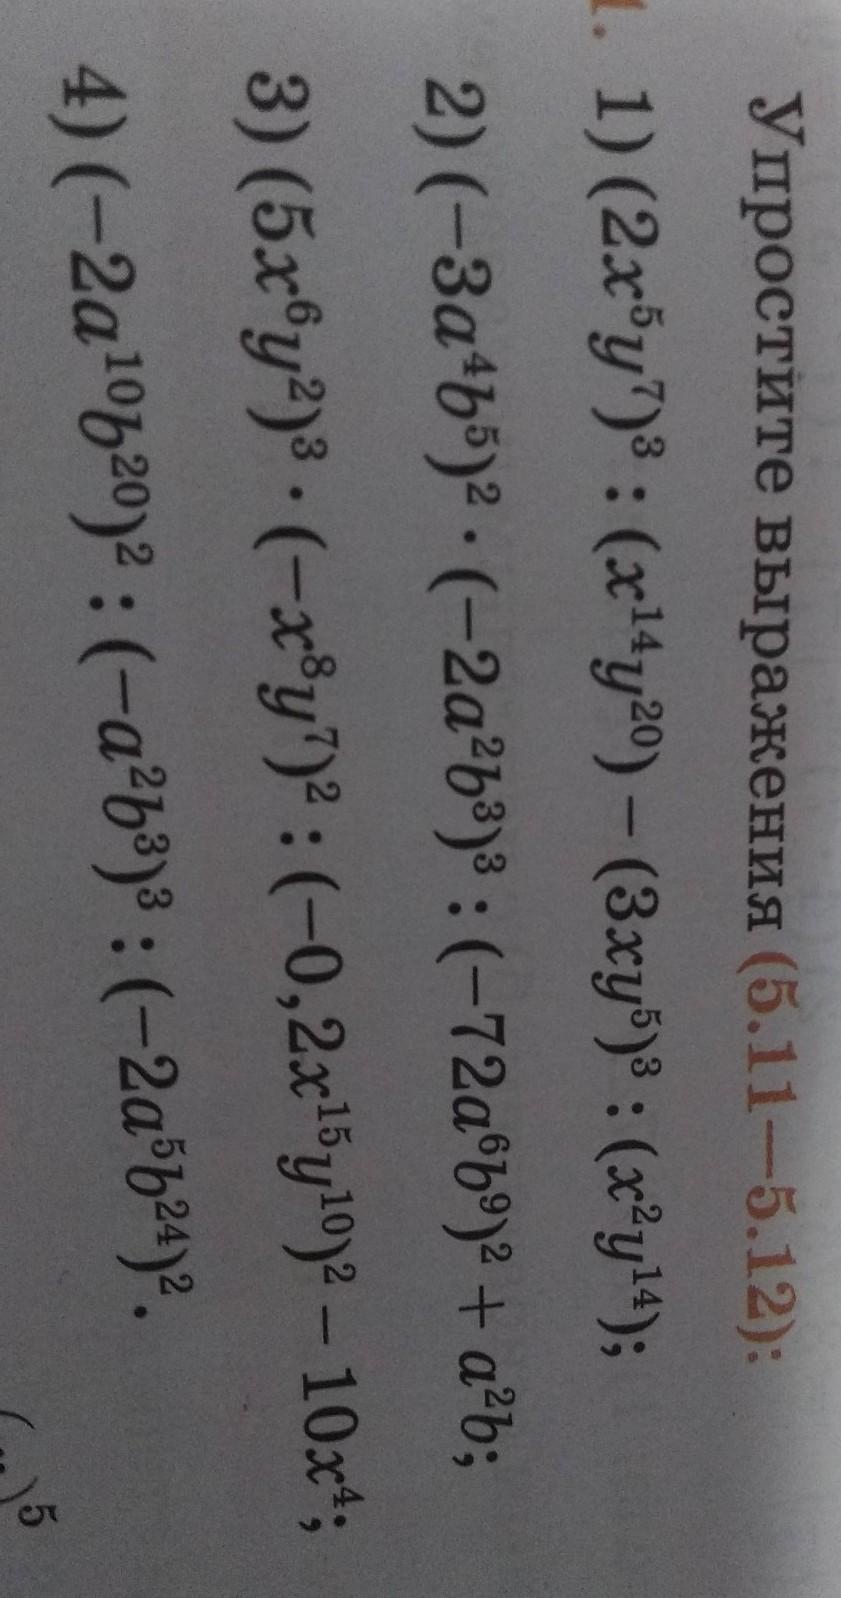 Упростите выражения (5.11—5.12):
1. 1) (2x⁵y⁷)³ : (x¹⁴y²⁰) – (3xy⁵)³ : (x²y¹⁴);
2) (–3a⁴b⁵)² · (–2a²b³)³ : (–72a⁶b⁹)² + a²b;
3) (5x⁶y²)³ · (–x⁸y⁷)² : (–0,2x¹⁵y¹⁰)² – 10x⁴;
4) (–2a¹⁰b²⁰)² : (–a²b³)³ : (–2a⁵b²⁴)².